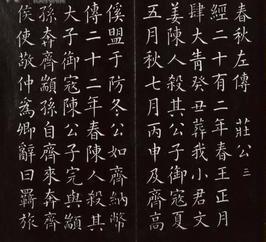 春秋左傳 莊公三
經二十有二年春王正月
肆大眚癸丑葬我小君文
姜陳人殺其公子御寇夏
五月秋七月丙申及齊高
傒盟于防冬公如齊納幣
傳二十二年春陳人殺其
大子御寇陳公子完與顓
孫奔齊顓孫自齊來奔齊
侯使敬仲為卿辭曰羈旅